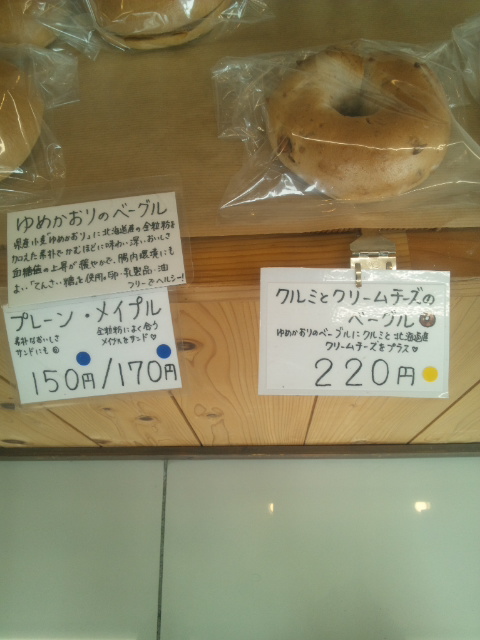 ゆめかおりのベーグル
県産小麦ゆめかおりに北海道産の全粒粉を
加えた素朴でかむほどに味わい深いおいしさ
血糖値の上昇が緩やかで、腸内環境にも
よい「てんさい糖」を使用。卵・乳製品・油
フリーでヘルシー!
プレーン・メイプル
素朴なおいしさ
サンドにも
全粒粉によく合う
メイプルをサンド♡
150円/170円
クルミとクリームチーズの
ベーグル
ゆめかおりのベーグルにクルミと北海道産
クリームチーズをプラス♡
220円